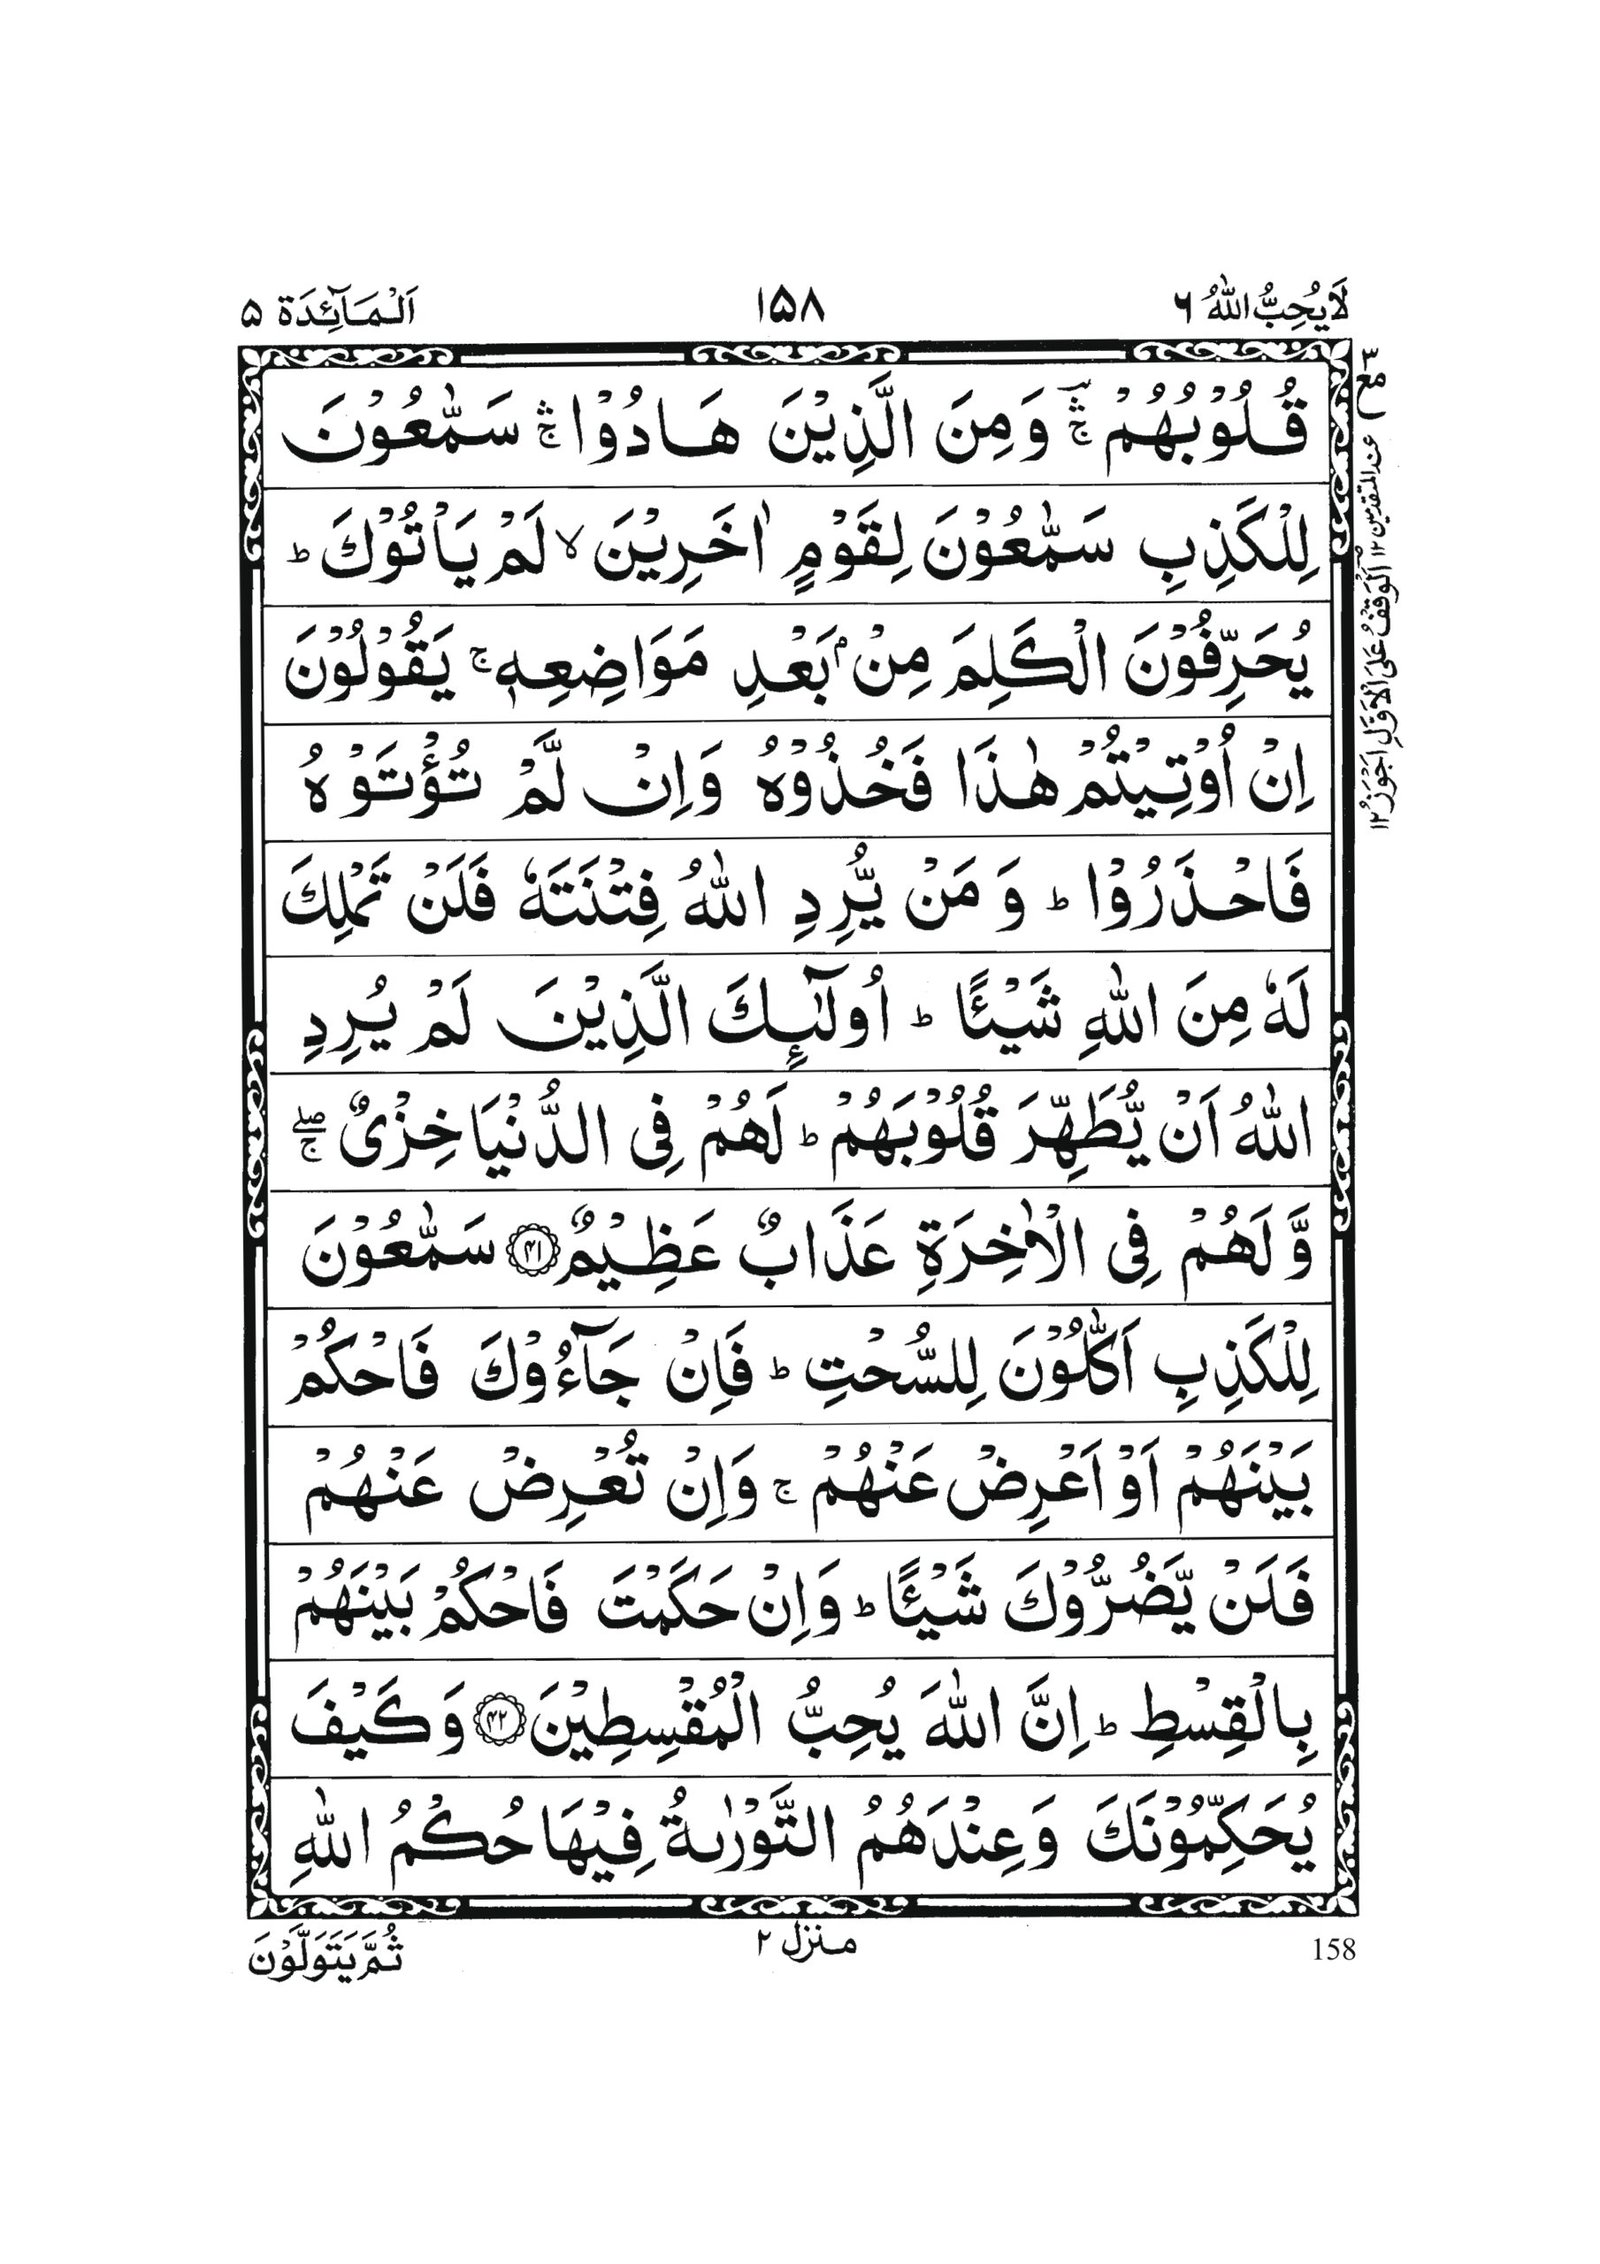 لَا يُحِبُّ اللّٰهُ ٦
١٥٨
اَلْمَآئِدَة ۵
قُلُوْبُهُمْ ۛۚ وَمِنَ الَّذِيْنَ هَادُوْا ۛۚ سَمّٰعُوْنَ
لِلْكَذِبِ سَمّٰعُوْنَ لِقَوْمٍ اٰخَرِيْنَ ۙ لَمْ يَاْتُوْكَ ؕ
يُحَرِّفُوْنَ الْكَلِمَ مِنْۢ بَعْدِ مَوَاضِعِهٖ ۚ يَقُوْلُوْنَ
اِنْ اُوْتِيْتُمْ هٰذَا فَخُذُوْهُ وَاِنْ لَّمْ تُؤْتَوْهُ
فَاحْذَرُوْا ؕ وَمَنْ يُّرِدِ اللّٰهُ فِتْنَتَهٗ فَلَنْ تَمْلِكَ
لَهٗ مِنَ اللّٰهِ شَيْـًٔا ؕ اُولٰٓئِكَ الَّذِيْنَ لَمْ يُرِدِ
اللّٰهُ اَنْ يُّطَهِّرَ قُلُوْبَهُمْ ؕ لَهُمْ فِى الدُّنْيَا خِزْىٌ ۖۚ
وَّلَهُمْ فِى الْاٰخِرَةِ عَذَابٌ عَظِيْمٌ ﴿۴۱﴾ سَمّٰعُوْنَ
لِلْكَذِبِ اَكّٰلُوْنَ لِلسُّحْتِ ؕ فَاِنْ جَآءُوْكَ فَاحْكُمْ
بَيْنَهُمْ اَوْ اَعْرِضْ عَنْهُمْ ۚ وَاِنْ تُعْرِضْ عَنْهُمْ
فَلَنْ يَّضُرُّوْكَ شَيْـًٔا ؕ وَاِنْ حَكَمْتَ فَاحْكُمْ بَيْنَهُمْ
بِالْقِسْطِ ؕ اِنَّ اللّٰهَ يُحِبُّ الْمُقْسِطِيْنَ ﴿۴۲﴾ وَكَيْفَ
يُحَكِّمُوْنَكَ وَعِنْدَهُمُ التَّوْرٰىةُ فِيْهَا حُكْمُ اللّٰهِ
مع ٣
عند المتقدمين ١٢
اَلْوَقْفُ عَلَى الْاَوَّلِ اَجْوَزُ ١٢
158
منزل ٢
ثُمَّ يَتَوَلَّوْنَ